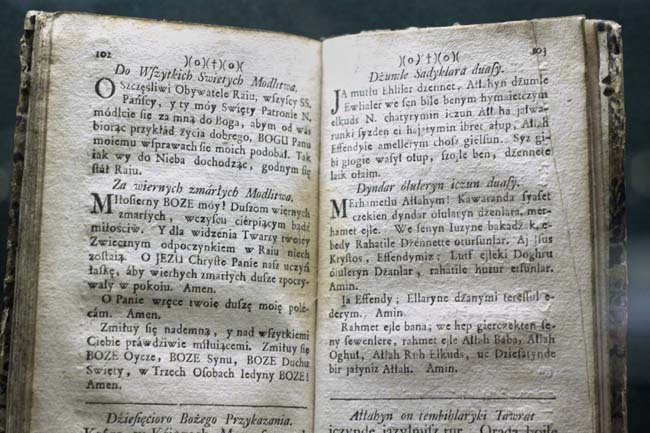 102 )(o)(†)(o)(
Do Wszytkich Swiętych Modlitwa.
OSzczęśliwi Obywatele Raiu, wszyscy SS.
Pańscy, y ty móy Swięty Patronie N.
módlcie się za mną do Boga, abym od was
biorąc przykład życia dobrego, BOGU Panu
moiemu wsprawach się moich podobał. Tak
iak wy do Nieba dochodząc, godnym się
stał Raiu.
Za wiernych zmarłych Modlitwa.
MIłosierny BOZE móy! Duszom wiernych
zmarłych, wczyscu cierpiącym bądź
miłościw. Y dla widzenia Twarzy twoiey
Zwiecznym odpoczynkiem w Raiu niech
zostaią. O JEZU Chryste Panie nasz uczyń
łaskę, áby wierhych zmarłych dusze spoczy-
wały w pokoiu. Amen.
O Panie wręce twoie duszę moię pole-
cám. Amen.
Zmiłuy się nademną, y nad wszytkiemi
Ciebie prawdziwie miłuiącemi. Zmiłuy się
BOZE Oycze, BOZE Synu, BOZE Duchu
Swięty, w Trzech Osobach Iedyny BOZE!
Amen.
Dziesięcioro Bożego Przykazania.
)(o)(†)(o)( 103
Dżumle Sadyklara duasy.
JA mutlu Ehliler dżennet, Ałłahyn dżumle
Ewlialer we sen bile benym hymaietczym
elkuds N. chatyrymin iczun Ałłha jalwa-
runki syzden ei hajatymin ibret ałup, Ałłah
Effendyie amellerym chosz gielsun. Syz gi-
bi giogie wasyl ołup, szojle ben, dżennete
laik ołaim.
Dyndar óluleryn iczun duasy.
MErhametlu Ałłahym! Kawaranda syaset
czekien dyndar olulaŕyn dżenlara, mer-
hamet ejle. We senyn Iuzyne bakadżak, e-
bedy Rahatile Dżennette otursunlar. Aj Jsus
Krystos, Effendymiz: Lutf ejleki Doghru
óluleryn Dżanlar, rahatile huzur etsunlar.
Amin.
Ja Effendy; Ellaryne dżanymi tereslul e-
derym. Amin
Rahmet ejle bana; we hep gierczekten se-
ny sewenlere, rahmet ejle Ałłah Baba, Ałłah
Oghul, Ałłah Ruh Elkuds, uc Dziesatynde
bir jałyniz Ałłah. Amin.
Ałłahyn on tembihlaryki Tawrat